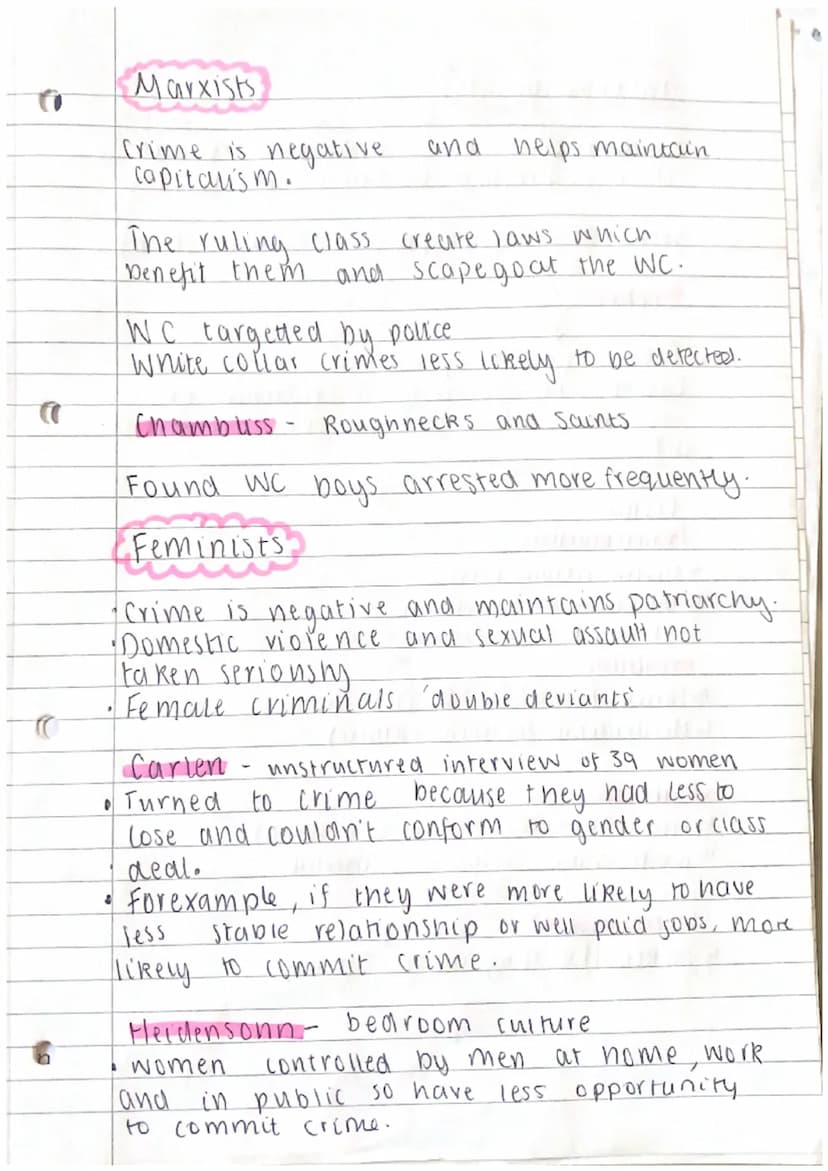 Marxists
Crime is negative and helps maintain
capitalism.
The ruling class create laws which
benefit them and scapegoat the WC.
WC targetted by police
White collar crimes less likely to be detected.
Chambliss - Roughnecks and Saints
Found WC boys arrested more frequently.
Feminists
• Crime is negative and maintains patriarchy.
• Domestic violence and sexual assault not
taken seriously
• Female criminals 'double deviants'
Carlen - unstructured interview of 39 women
• Turned to crime because they had less to
lose and couldn't conform to gender or class
deal.
• For example, if they were more likely to have
less stable relationship or well paid jobs, more
likely to commit crime.
Heidensonn - bedroom culture
• women controlled by men at home, work
and in public so have less opportunity
to commit crime.